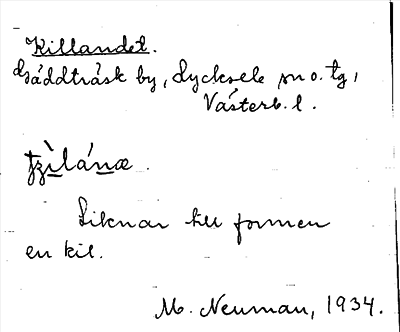 Killandet.
Gäddträsk by, Lycksele sn o. tg,
Västerb. l.
Liknar till formen
en kil.
M. Neuman, 1934.